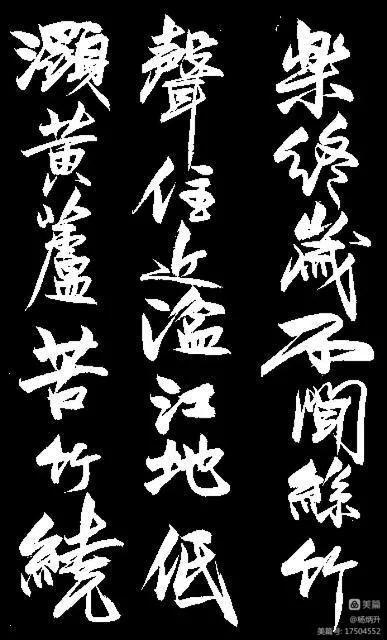 樂終歲不聞絲竹
聲住近湓江地低
灝黃蘆苦竹繞
美篇
@杨炳升
美篇号: 17504552